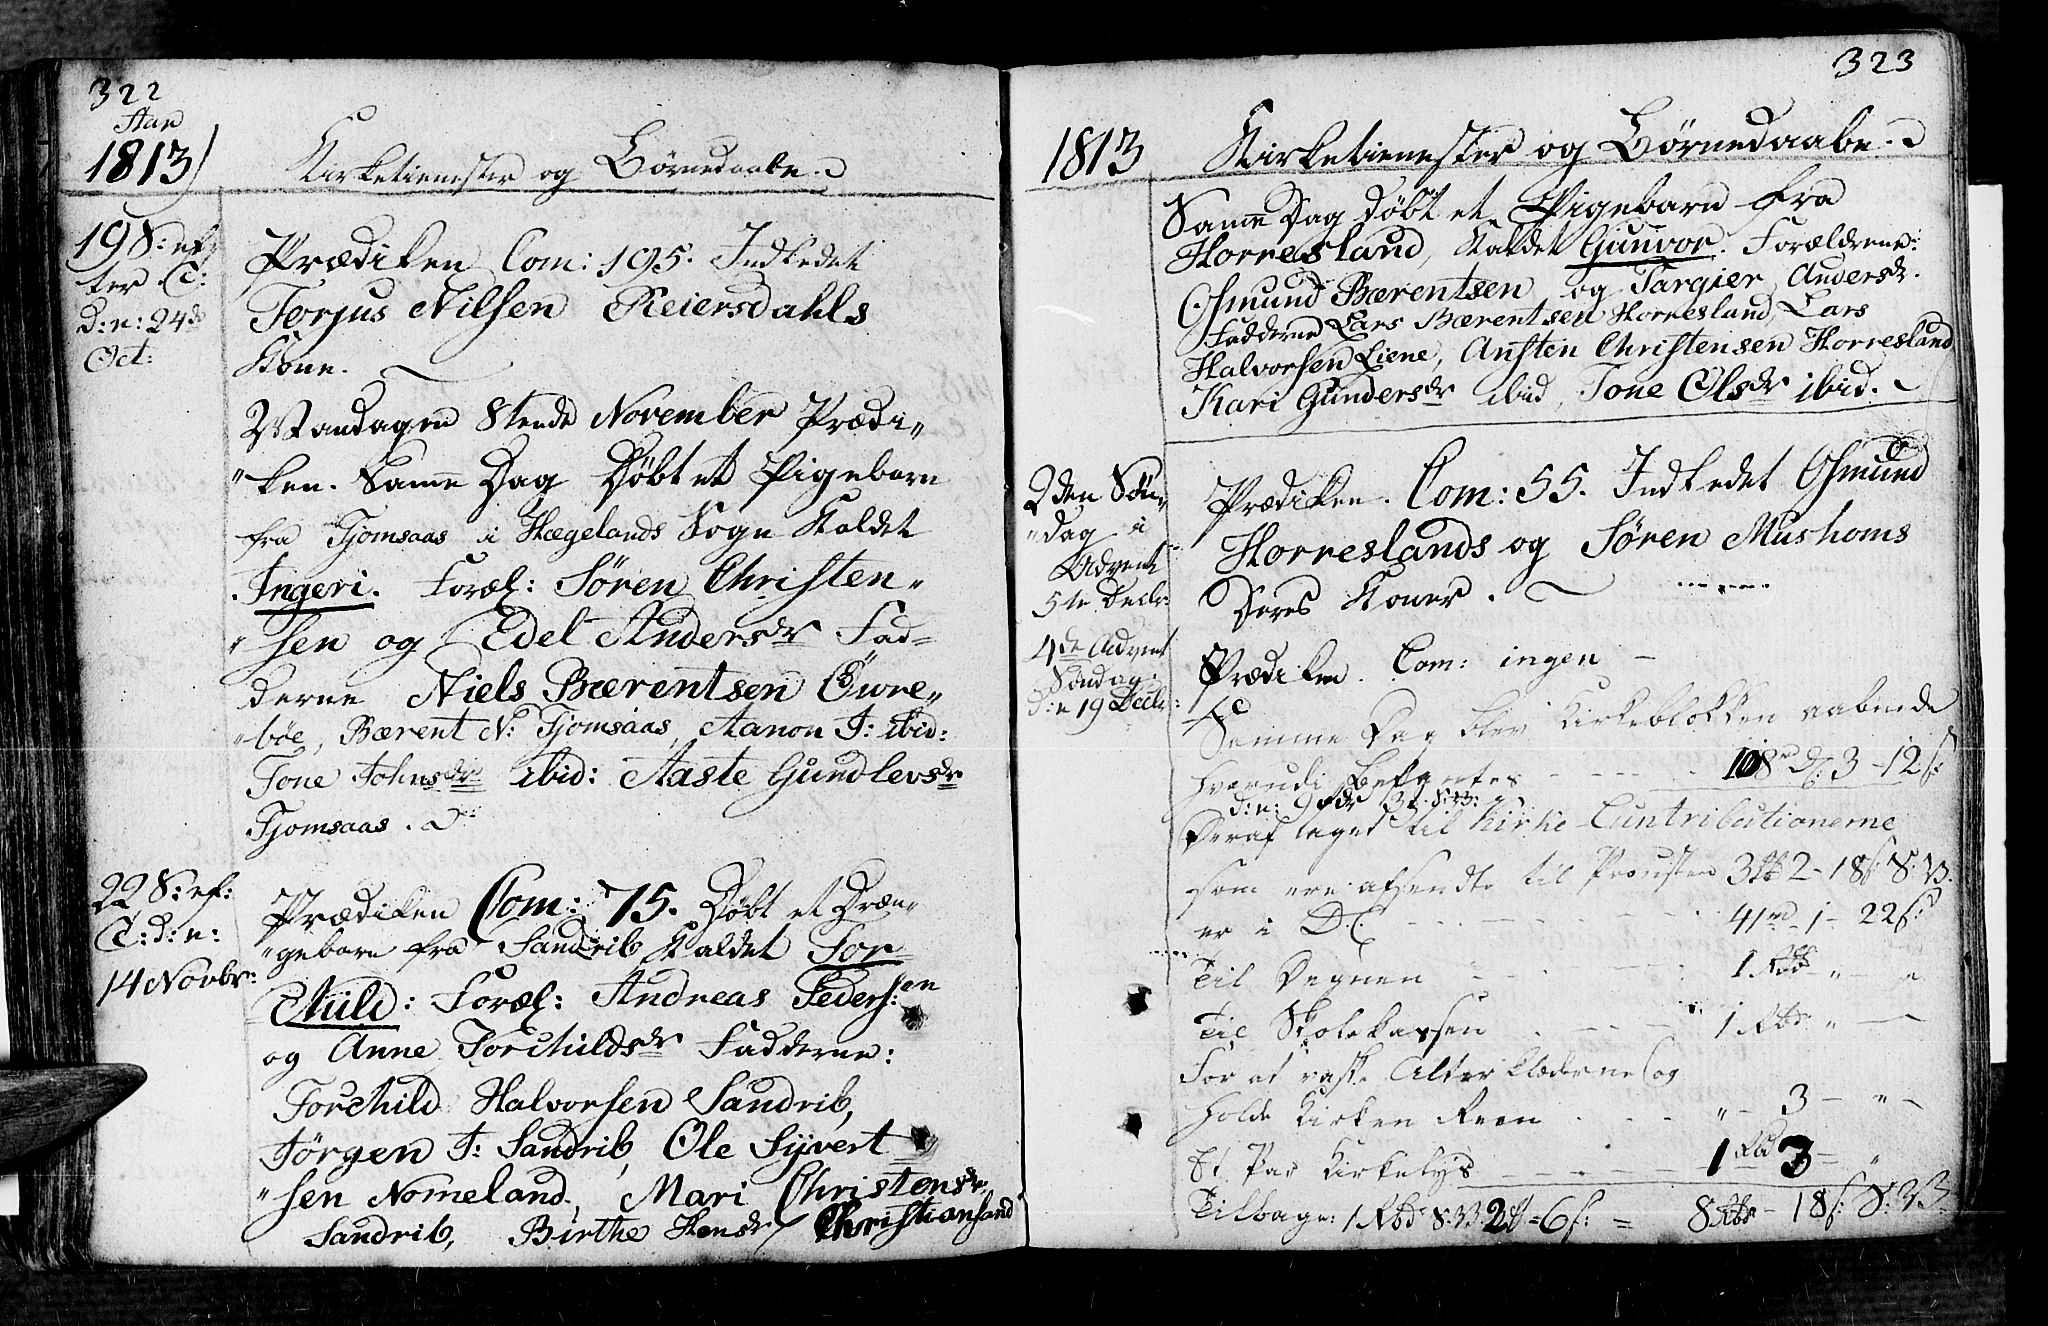 322
Aar
1813
Kirketienester og Börnedaabe.
19 S: ef-
ter T:
d: n: 24de
Oct:
Prædiken Com: 195. Indledet
Torjus Nilsen Reiersdahls
Kone.
Mandagen 8tende November Prædi„
„ken. Samme Dag Döbt et Pigebarn
fra Tjomsaas i Hægelands Sogn Kaldet
Ingeri. Foræl: Sören Christen„
„sen og Edel Andersdr Fad=
derne Niels Bærentsen Öwre„
„böe, Bærent N: Tjomsaas, Aanon T: ibid:
Tone Johnsdr ibid: Aaste Gundlevsdr
Tjomsaas.
22 S: ef:
T: d: n:
14 Novbr:
Prædiken Com: 75. Döbt et Dren„
„gebarn fra Sandrib Kaldet Tor=
Child: Foræl: Andreas Pedersen
og Anne Torchildsdr Fadderne:
Torchild Halvorsen Sandrib,
Jörgen T: Sandrib, Ole Syvert
„sen Nomeland, Mari Christensdr
Sandrib, Birthe Hensdr Christiansand
323
1813
Kirketienester og Börnedaabe.
Samme Dag döbt et Pigebarn fra
Horresland, Kaldet Gunvor. Forældrene:
Osmund Bærentsen og Targier Andersdr.
Fadderne Lars Bærentsen Horresland, Lars
Halvorsen Liene, Ansten Christensen Horresland
Kari Gundersdr ibid, Tone Olsdr ibid.
2den Sön„
„dag i
Advent
5te Decbr:
Prædiken. Com: 55. Indledet Osmund
Horreslands og Sören Mushoms
Deres Koner.
4de Advent
Söndag:
d: n 19 Decbr:
Prædiken. Com: ingen —
Samme Dag blev Kirkeblokken aabnede
hvorudi befantes - - - - 108rd 3 - 12s:
Deraf taget til Kirke Contributionerne
som ere afsendte til Provsten 3 2 - 18s S: V.
er i D. C. - - - - 41rd - 1 - 22s:
Til Degnen - - - 1 Rbd „ - „
Til Skolekassen - - - 1 Rbd „ -
For at vaske Alterklæderne og
holde Kirken Reen - - - „ - 3 - „ -
Et Par Kirkelys - - - 1 Rbd 3 - „
Tilbage: 1 Rbd S: V. 2 = 6s: = 8 Rbd - 18s: S: V.